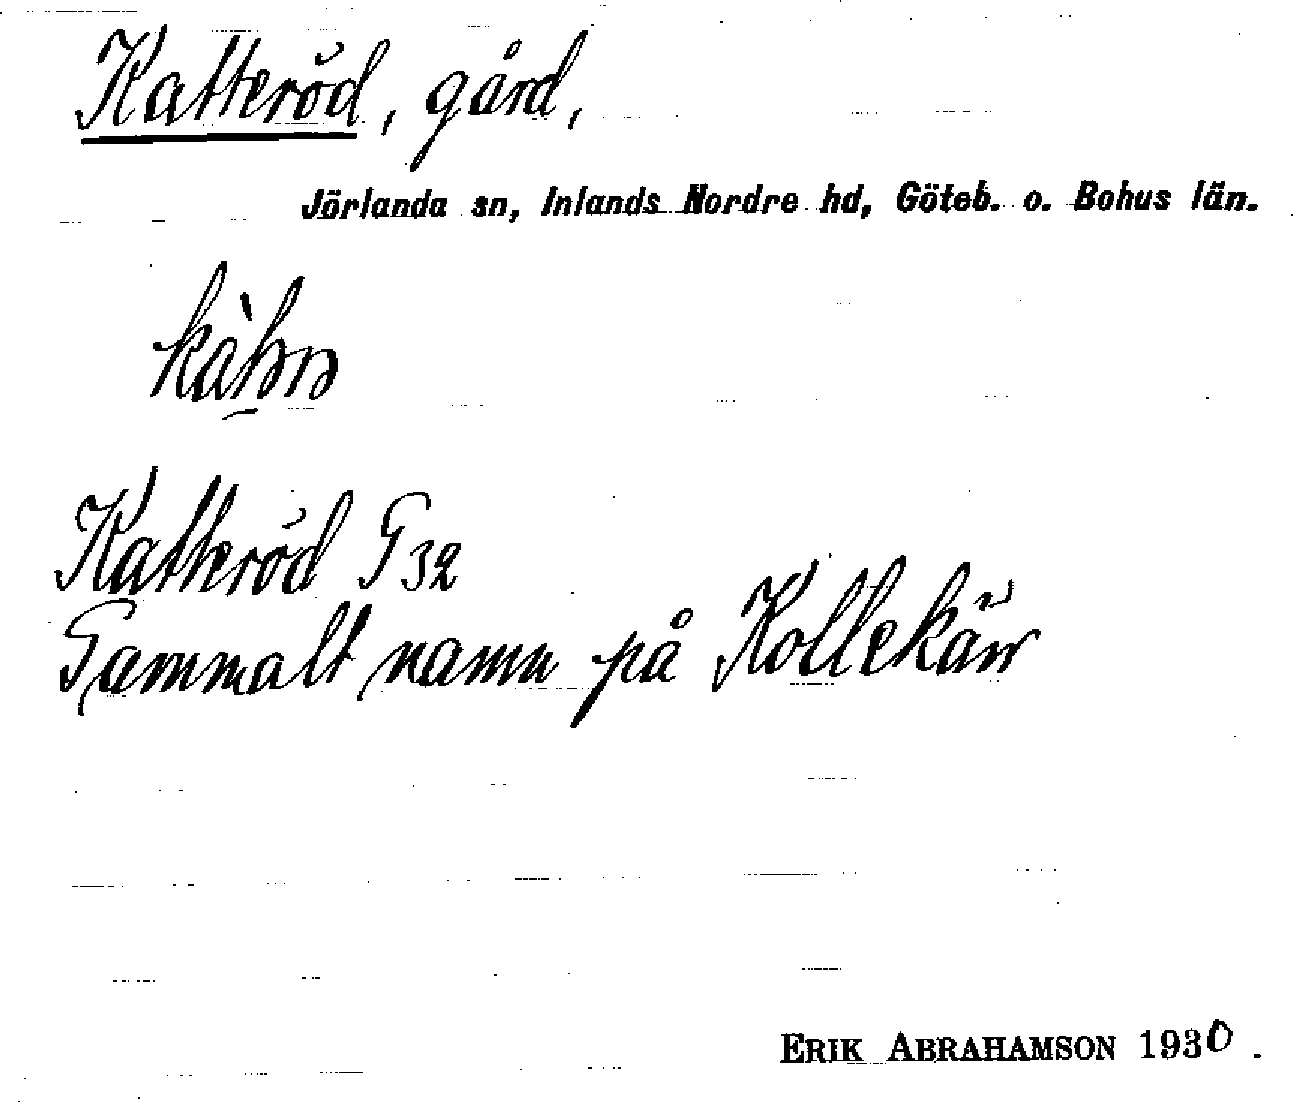 Katteröd, gård,
Jörlanda sn, Inlands Nordre hd, Göteb. o. Bohus län.
Katteröd G 32
Gammalt namn på Kollekärr
ERIK ABRAHAMSON 1930.